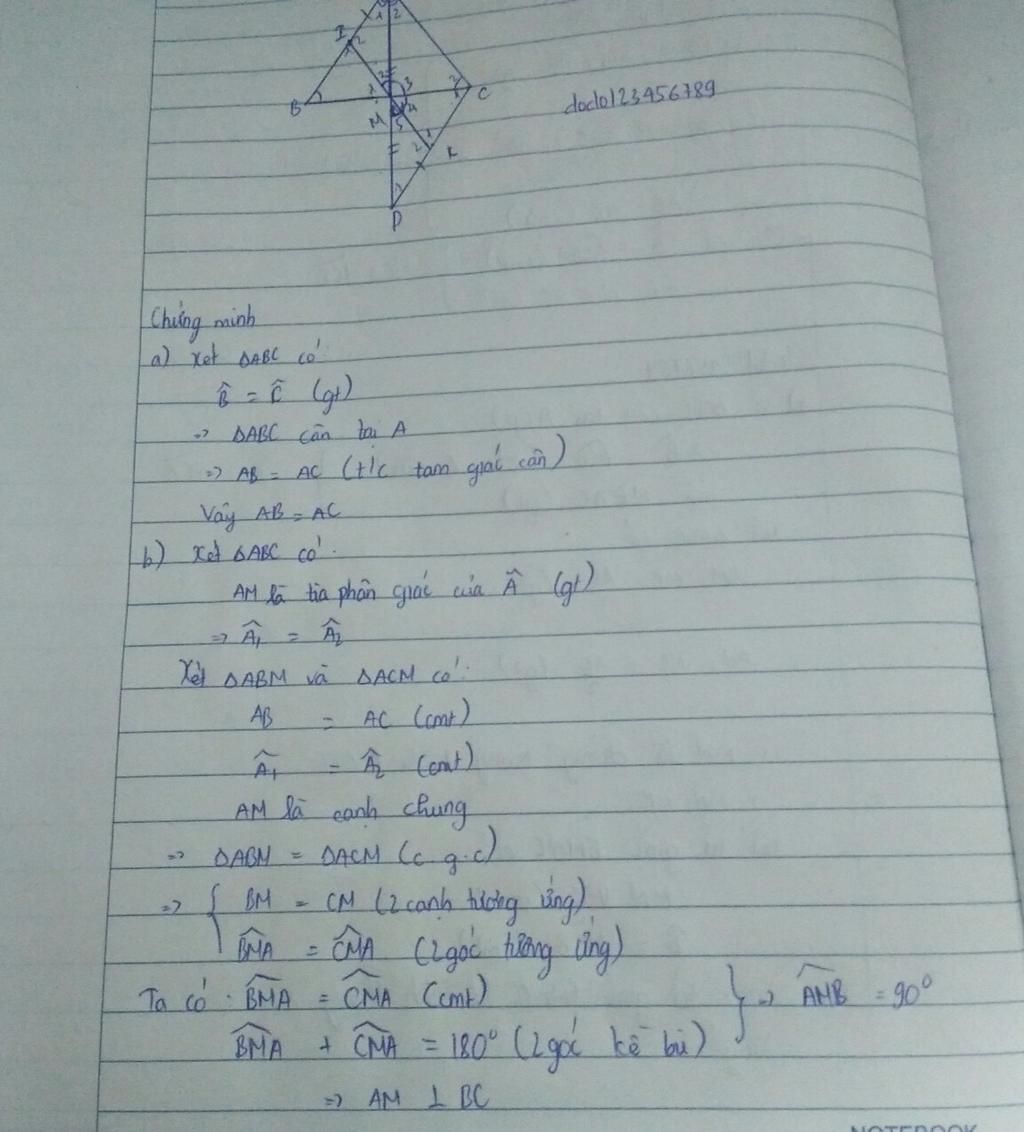 1 2
I 2
B
2 3
1 4
M 5
2 C
1
2 K
D
dodo123456789
Chứng minh
a) Xét ΔABC có:
B̂ = Ĉ (gt)
=> ΔABC cân tại A
=> AB = AC (t/c tam giác cân)
Vậy AB = AC
b) Xét ΔABC có:
AM là tia phân giác của Â (gt)
=> Â₁ = Â₂
Xét ΔABM và ΔACM có:
AB = AC (cmt)
Â₁ = Â₂ (cmt)
AM là cạnh chung
=> ΔABM = ΔACM (c.g.c)
=> { BM = CM (2 cạnh tương ứng)
BMA = CMA (2 góc tương ứng)
Ta có: BMA = CMA (cmt) } => AMB = 90°
BMA + CMA = 180° (2 góc kề bù)
=> AM ⊥ BC
NOTEBOOK